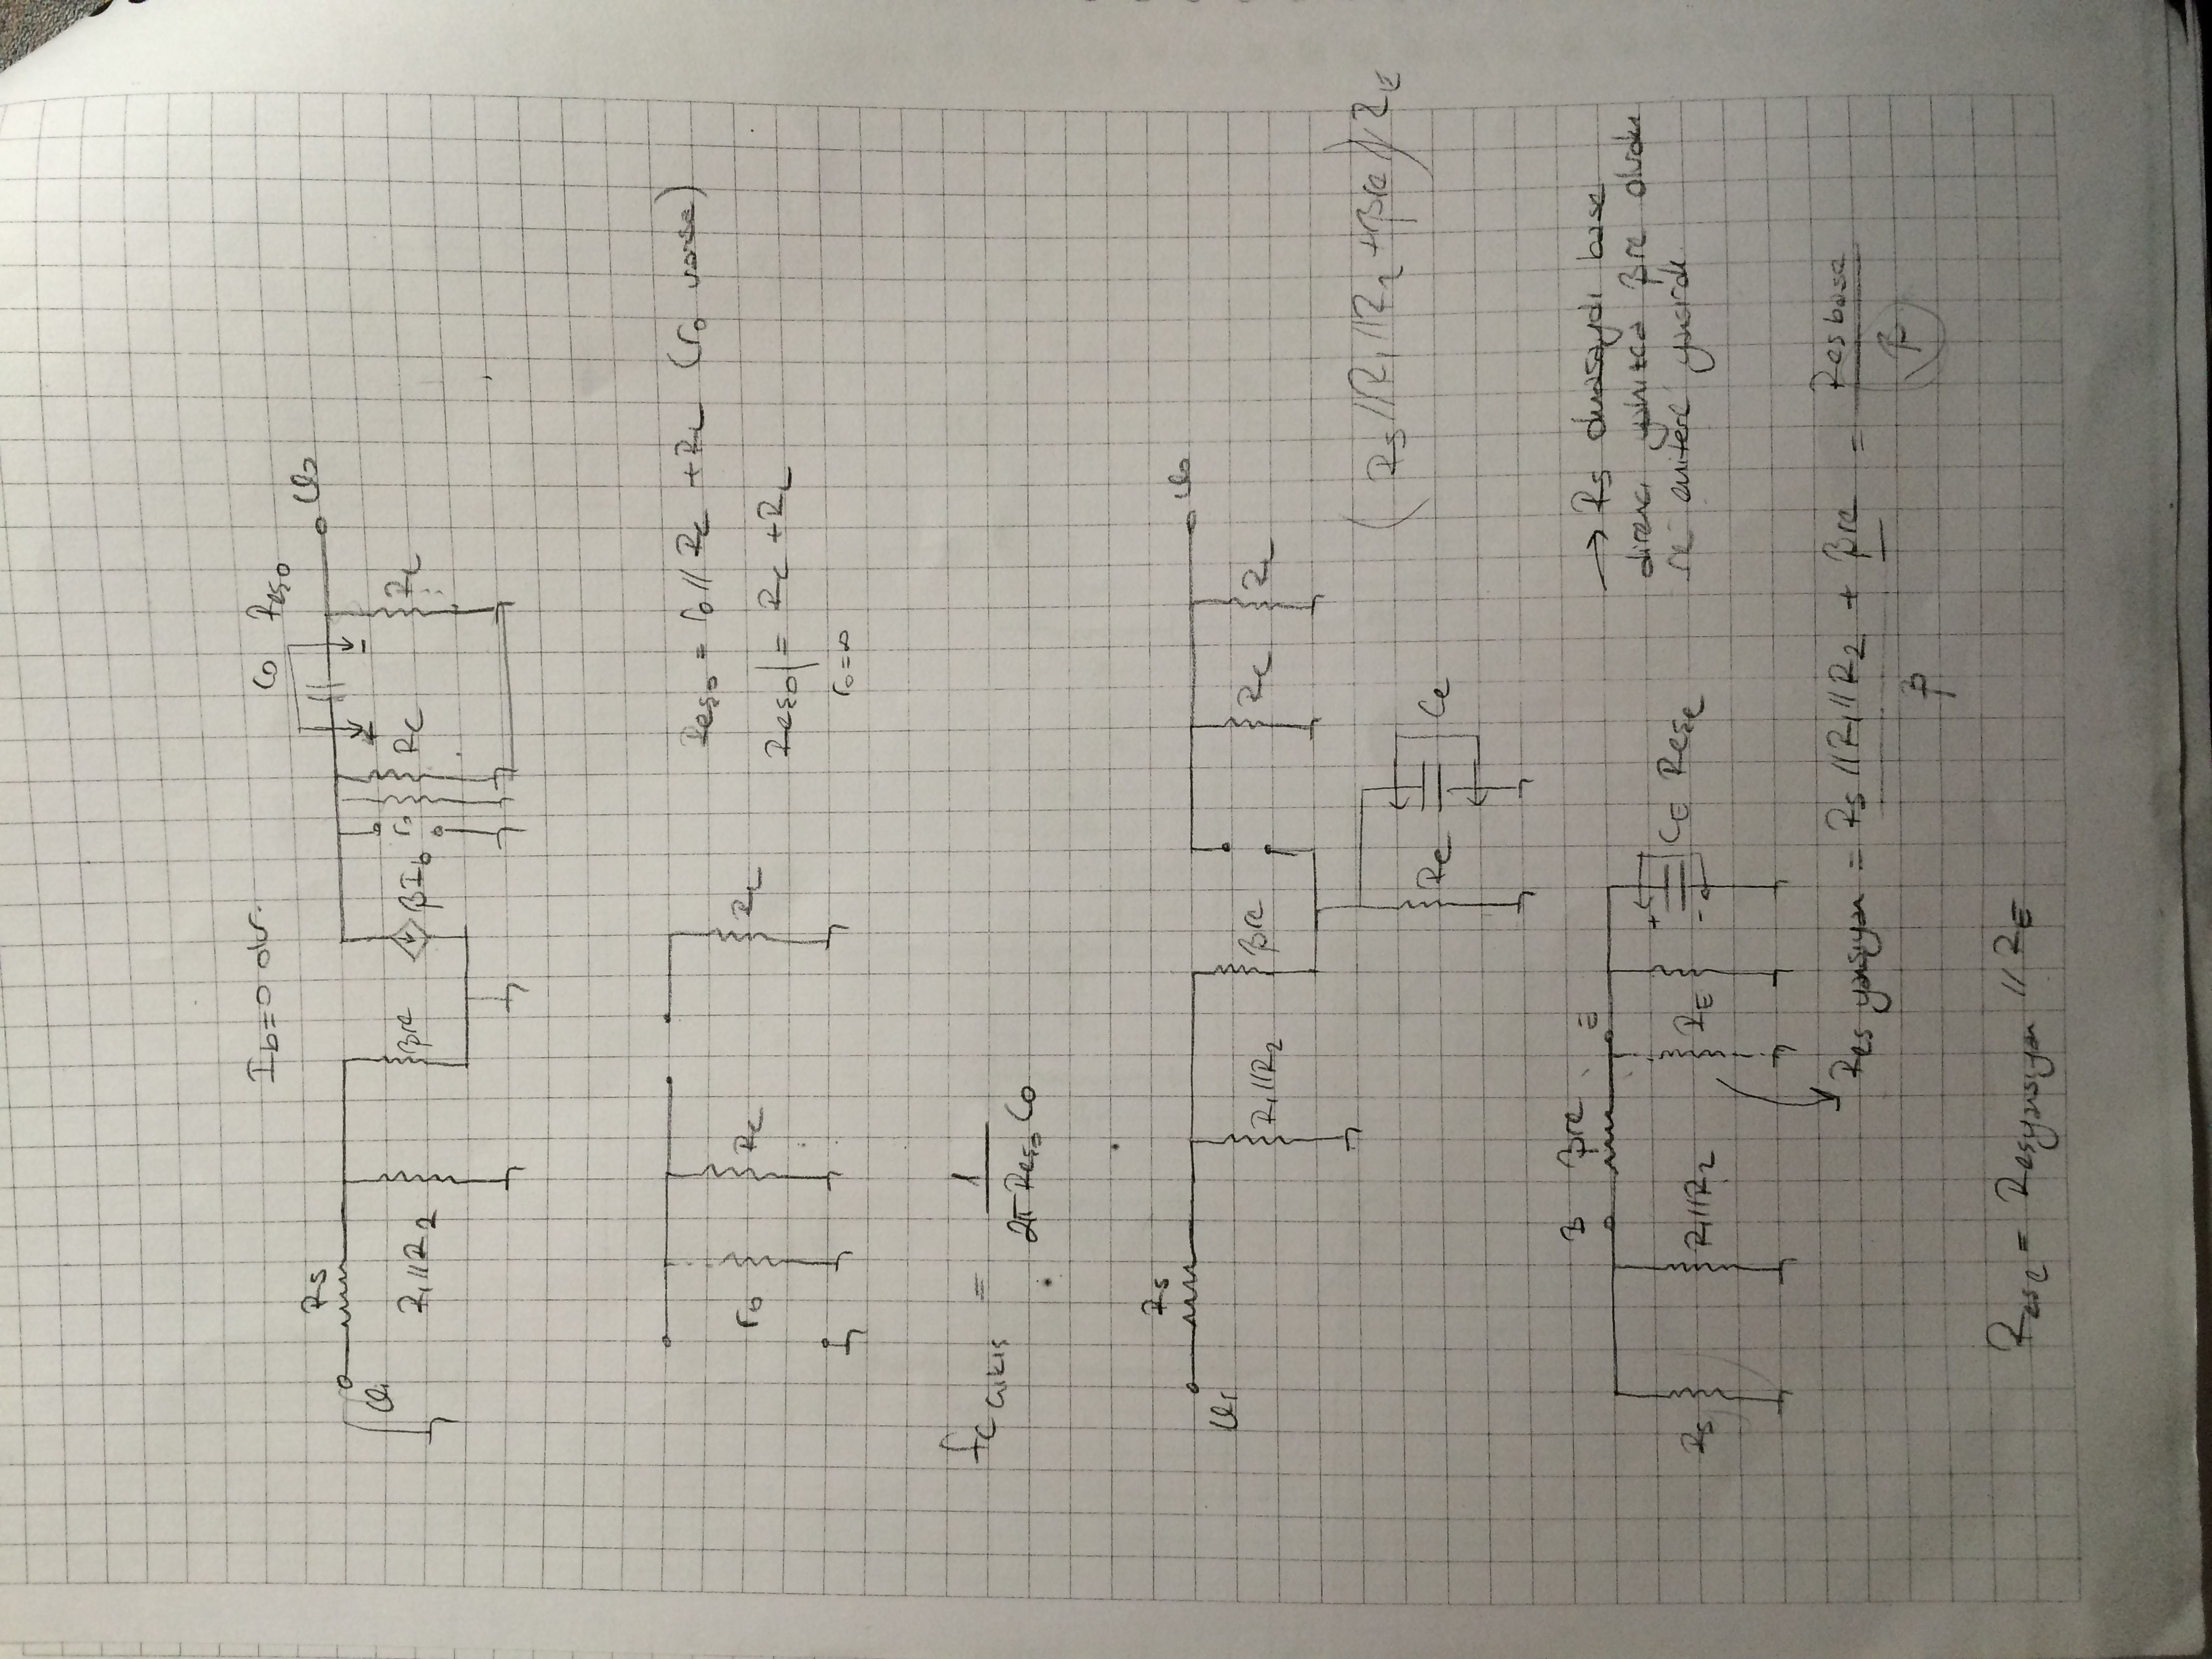 I_b=0 olur.
Co Reşo
Rs Uo
Ui R1//R2 βre βI_b ro RC RL
ro RC RL
Reşo = ro // RC + RL (ro varsa)
Reşo| = RC + RL
ro=∞
fC çıkış = 1
2π Reşo Co
Rs
Ui Uo
R1//R2 βre RC RL
(Rs//R1//R2 + βre) // RE
Re Ce
B βre E
Rs R1//R2 RE CE Reşe
→ Rs olmasaydı base
direnci yalnızca βre olurdu
re emitere yansırdı.
Reş yansıyan = Rs //R1//R2 + βre = Reş base
β β
Reşe = Reşyansıyan // RE